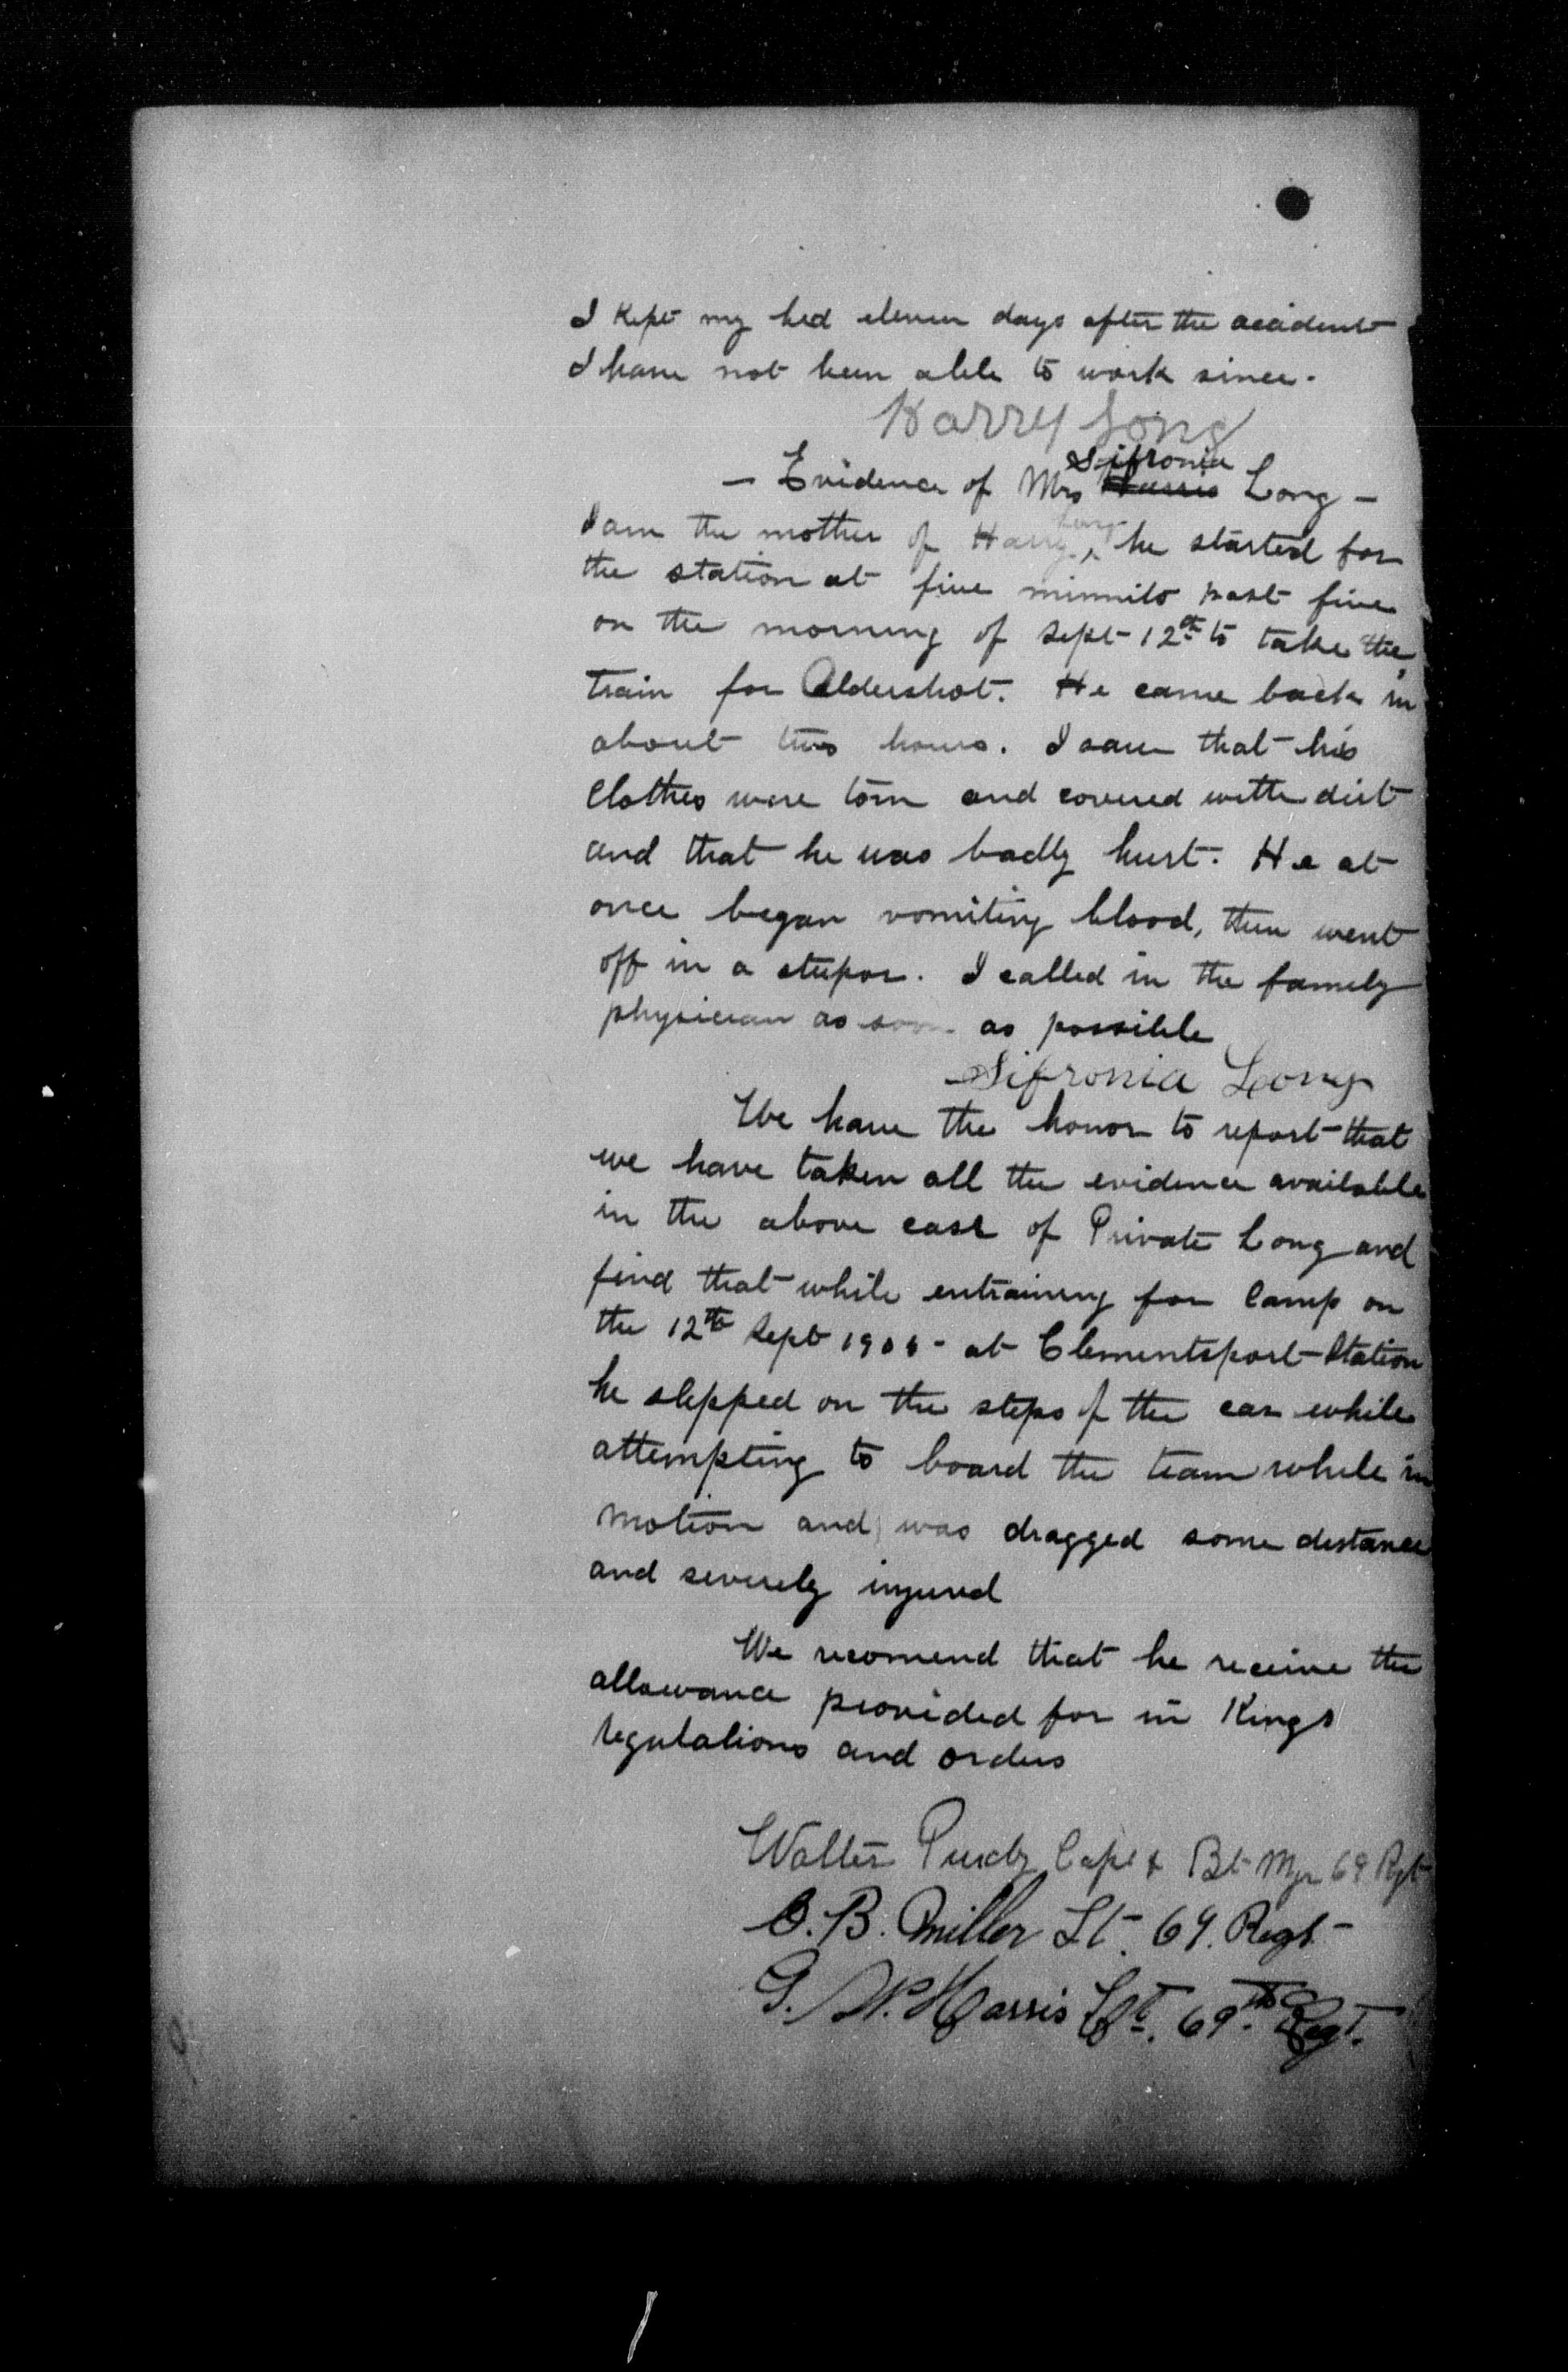 I kept my bed eleven days after the accident
I have not been able to work since.
Harry Long
— Evidence of Mrs Harris Sifronia Long —
I am the mother of Harry Long, he started for
the station at five minnits past five
on the morning of Sept 12th to take the
train for Aldershot. He came back in
about two hours. I saw that his
clothes were torn and covered with dirt
and that he was badly hurt. He at
once began vomiting blood, then went
off in a stupor. I called in the family
physician as soon as possible
Sifronia Long
We have the honor to report that
we have taken all the evidence available
in the above case of Private Long and
find that while entraining for Camp on
the 12th Sept at Clementsport Station
he slipped on the steps of the car while
attempting to board the train while in
motion and was dragged some distance
and severely injured
We recomend that he receive the
allowance provided for in Kings
regulations and orders
Walter Purdy Capt & Bt Mjr 69 Rgt
B. Miller Lt. 69. Regt
G. W. Harris Lt. 69th Regt.